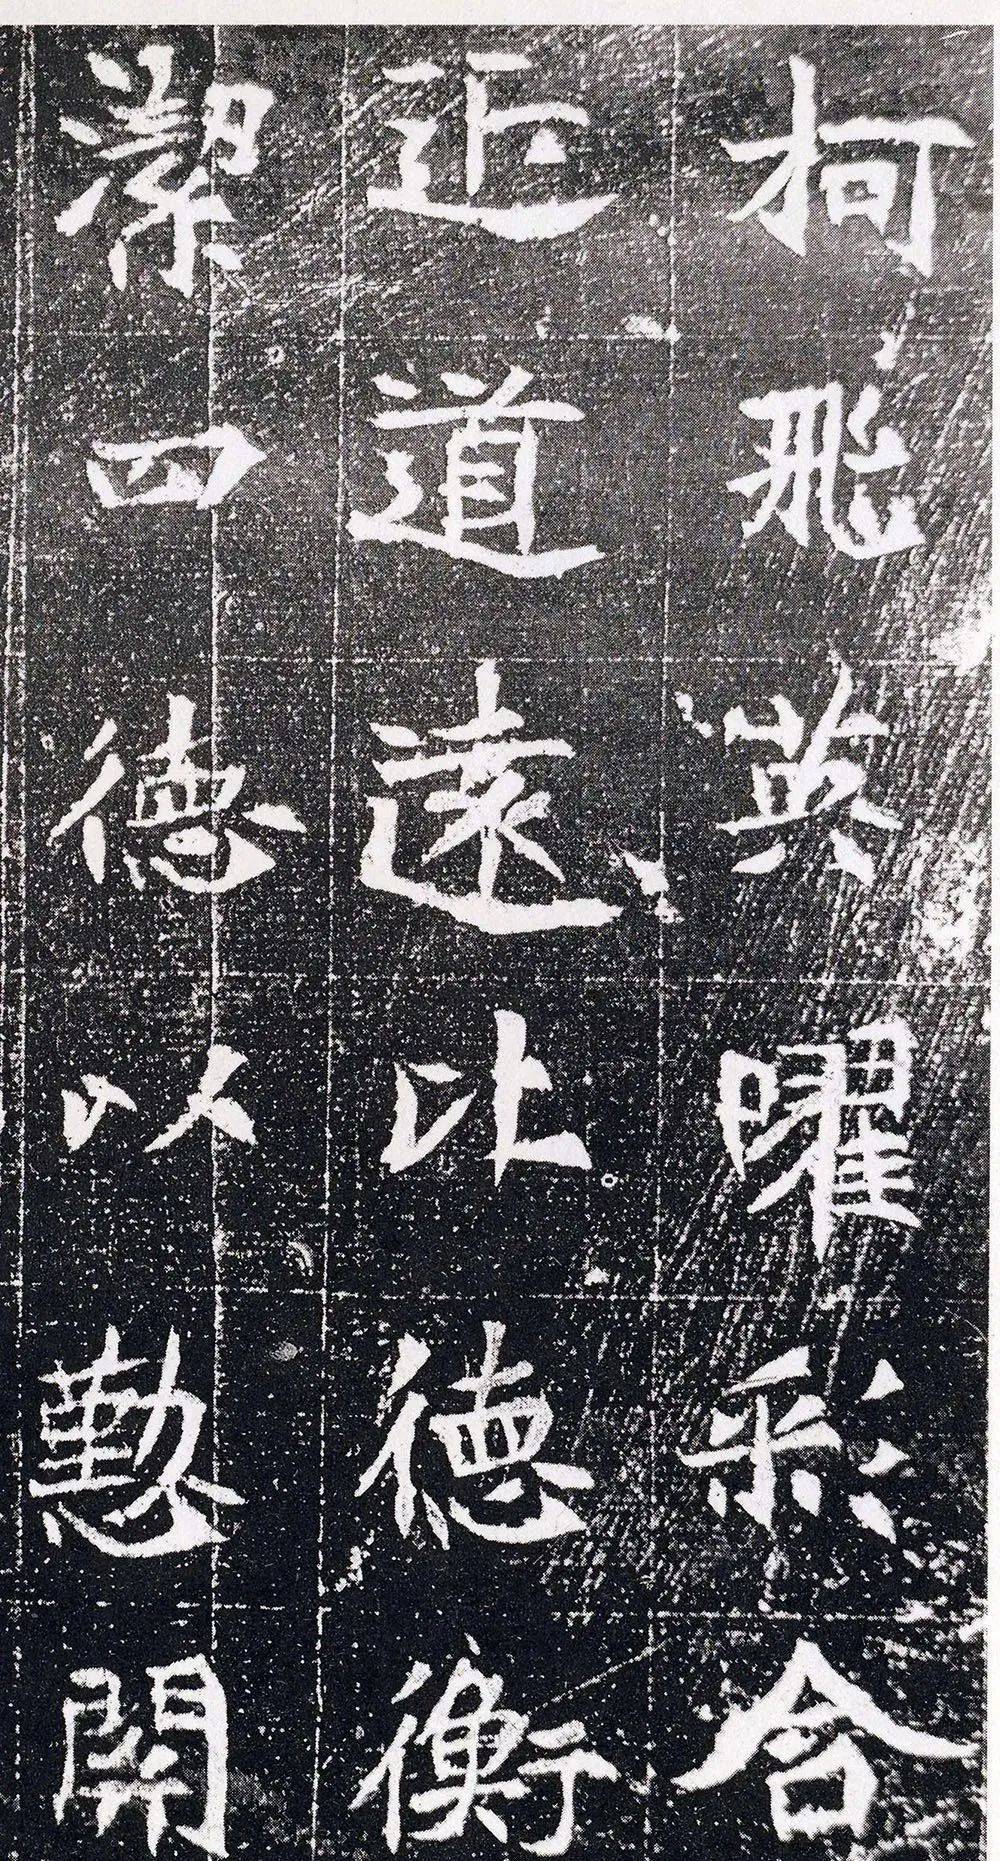 柯飛英曜彩含
近道遠比德衡
潔四德以懃開